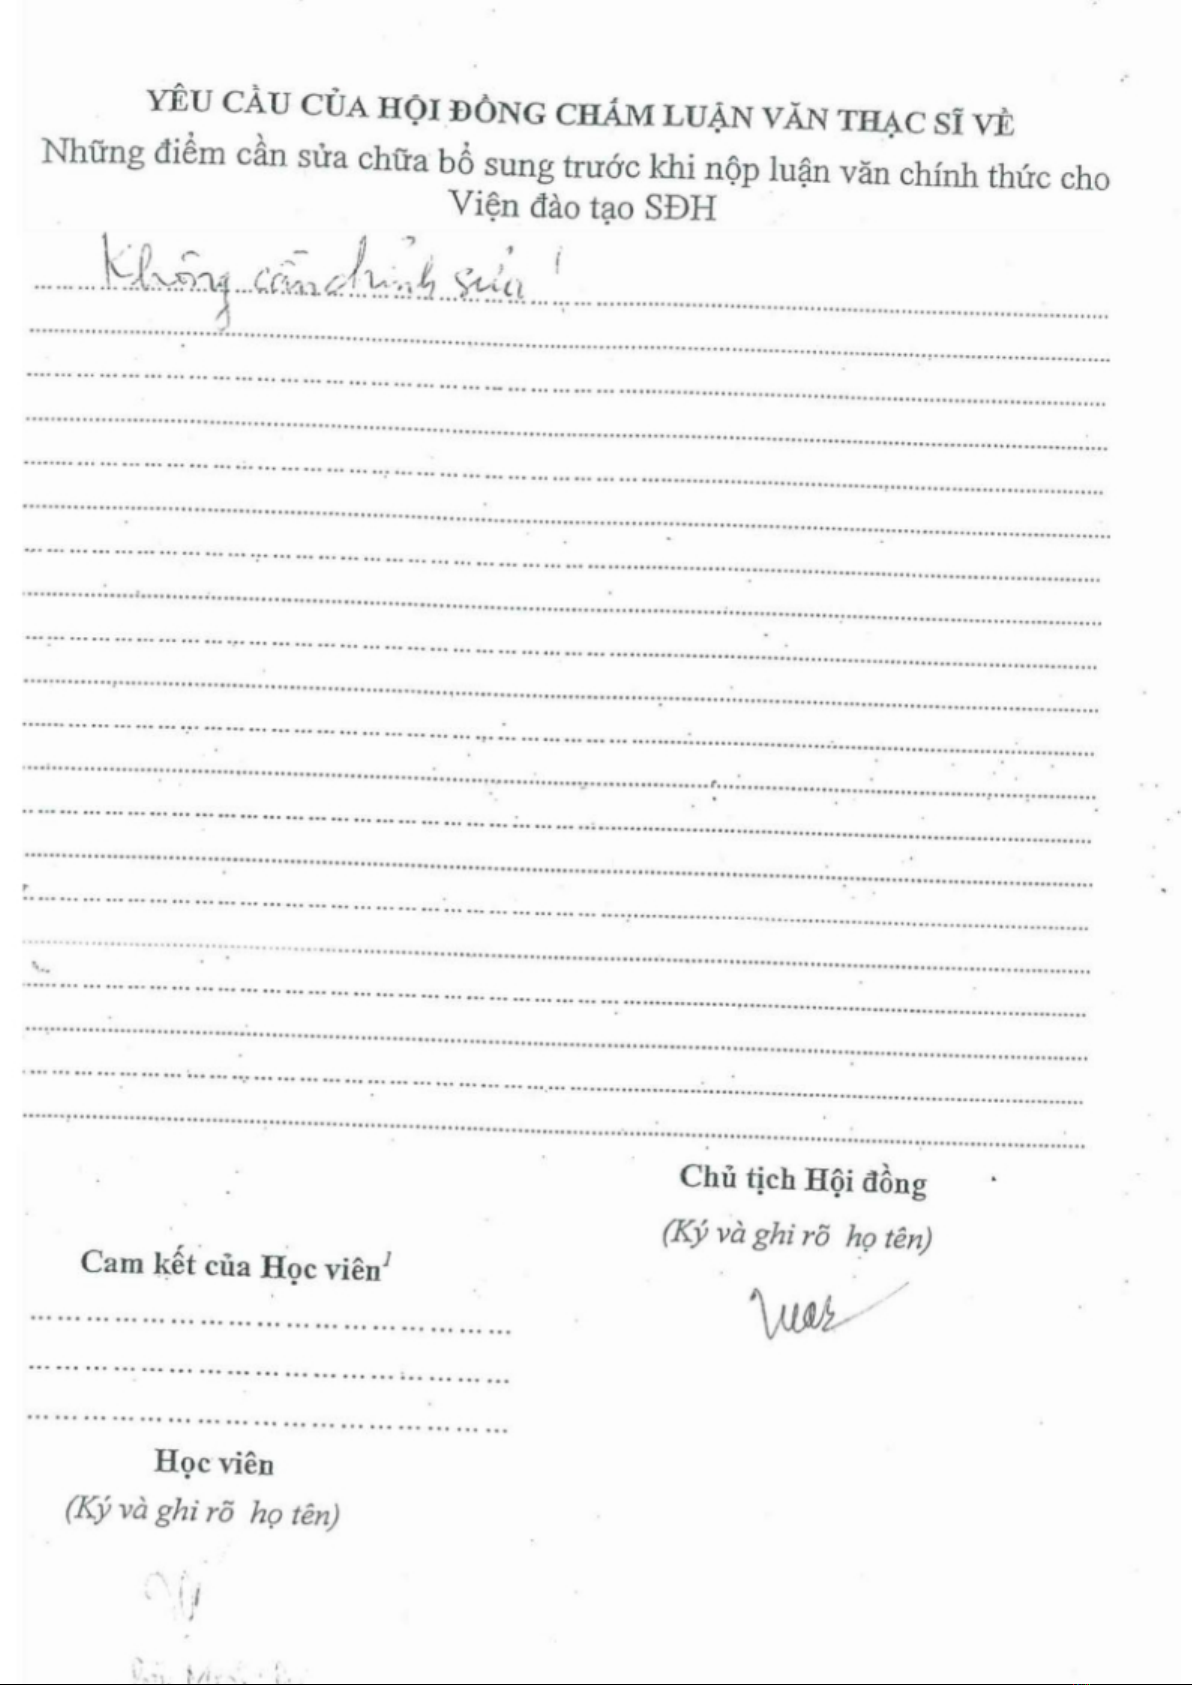 YÊU CẦU CỦA HỘI ĐỒNG CHẤM LUẬN VĂN THẠC SĨ VỀ
Những điểm cần sửa chữa bổ sung trước khi nộp luận văn chính thức cho
Viện đào tạo SĐH
Không cần chỉnh sửa !
Chủ tịch Hội đồng
(Ký và ghi rõ họ tên)
Cam kết của Học viên1
Học viên
(Ký và ghi rõ họ tên)